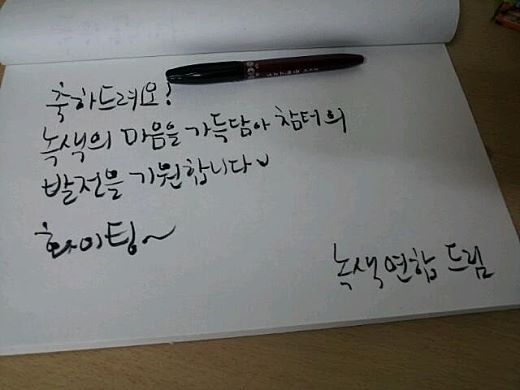 축하드려요!
녹색의 마음을 가득담아 참터의
발전을 기원합니다
화이팅~
녹색연합 드림